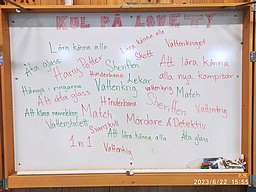 KUL PÅ LOVET!
Lära känna alla
Lära känna alla
Vattenkriget
Äta glass
Harry Potter
Sheriffen
Skott
Att lära känna
Hinderbana
Lekar
alla nya kompisar
Hänga i ringarna
Vattenkrig
vattenkrig
Match
Att äta glass
Hinderbana
Sheriffen
Vattenkrig
Att klara
Match
Mördare & Detektiv
Vattenstafett
1 in 1
Att lära känna alla
Äta glass
Vattenkrig
2023/6/22 15:55